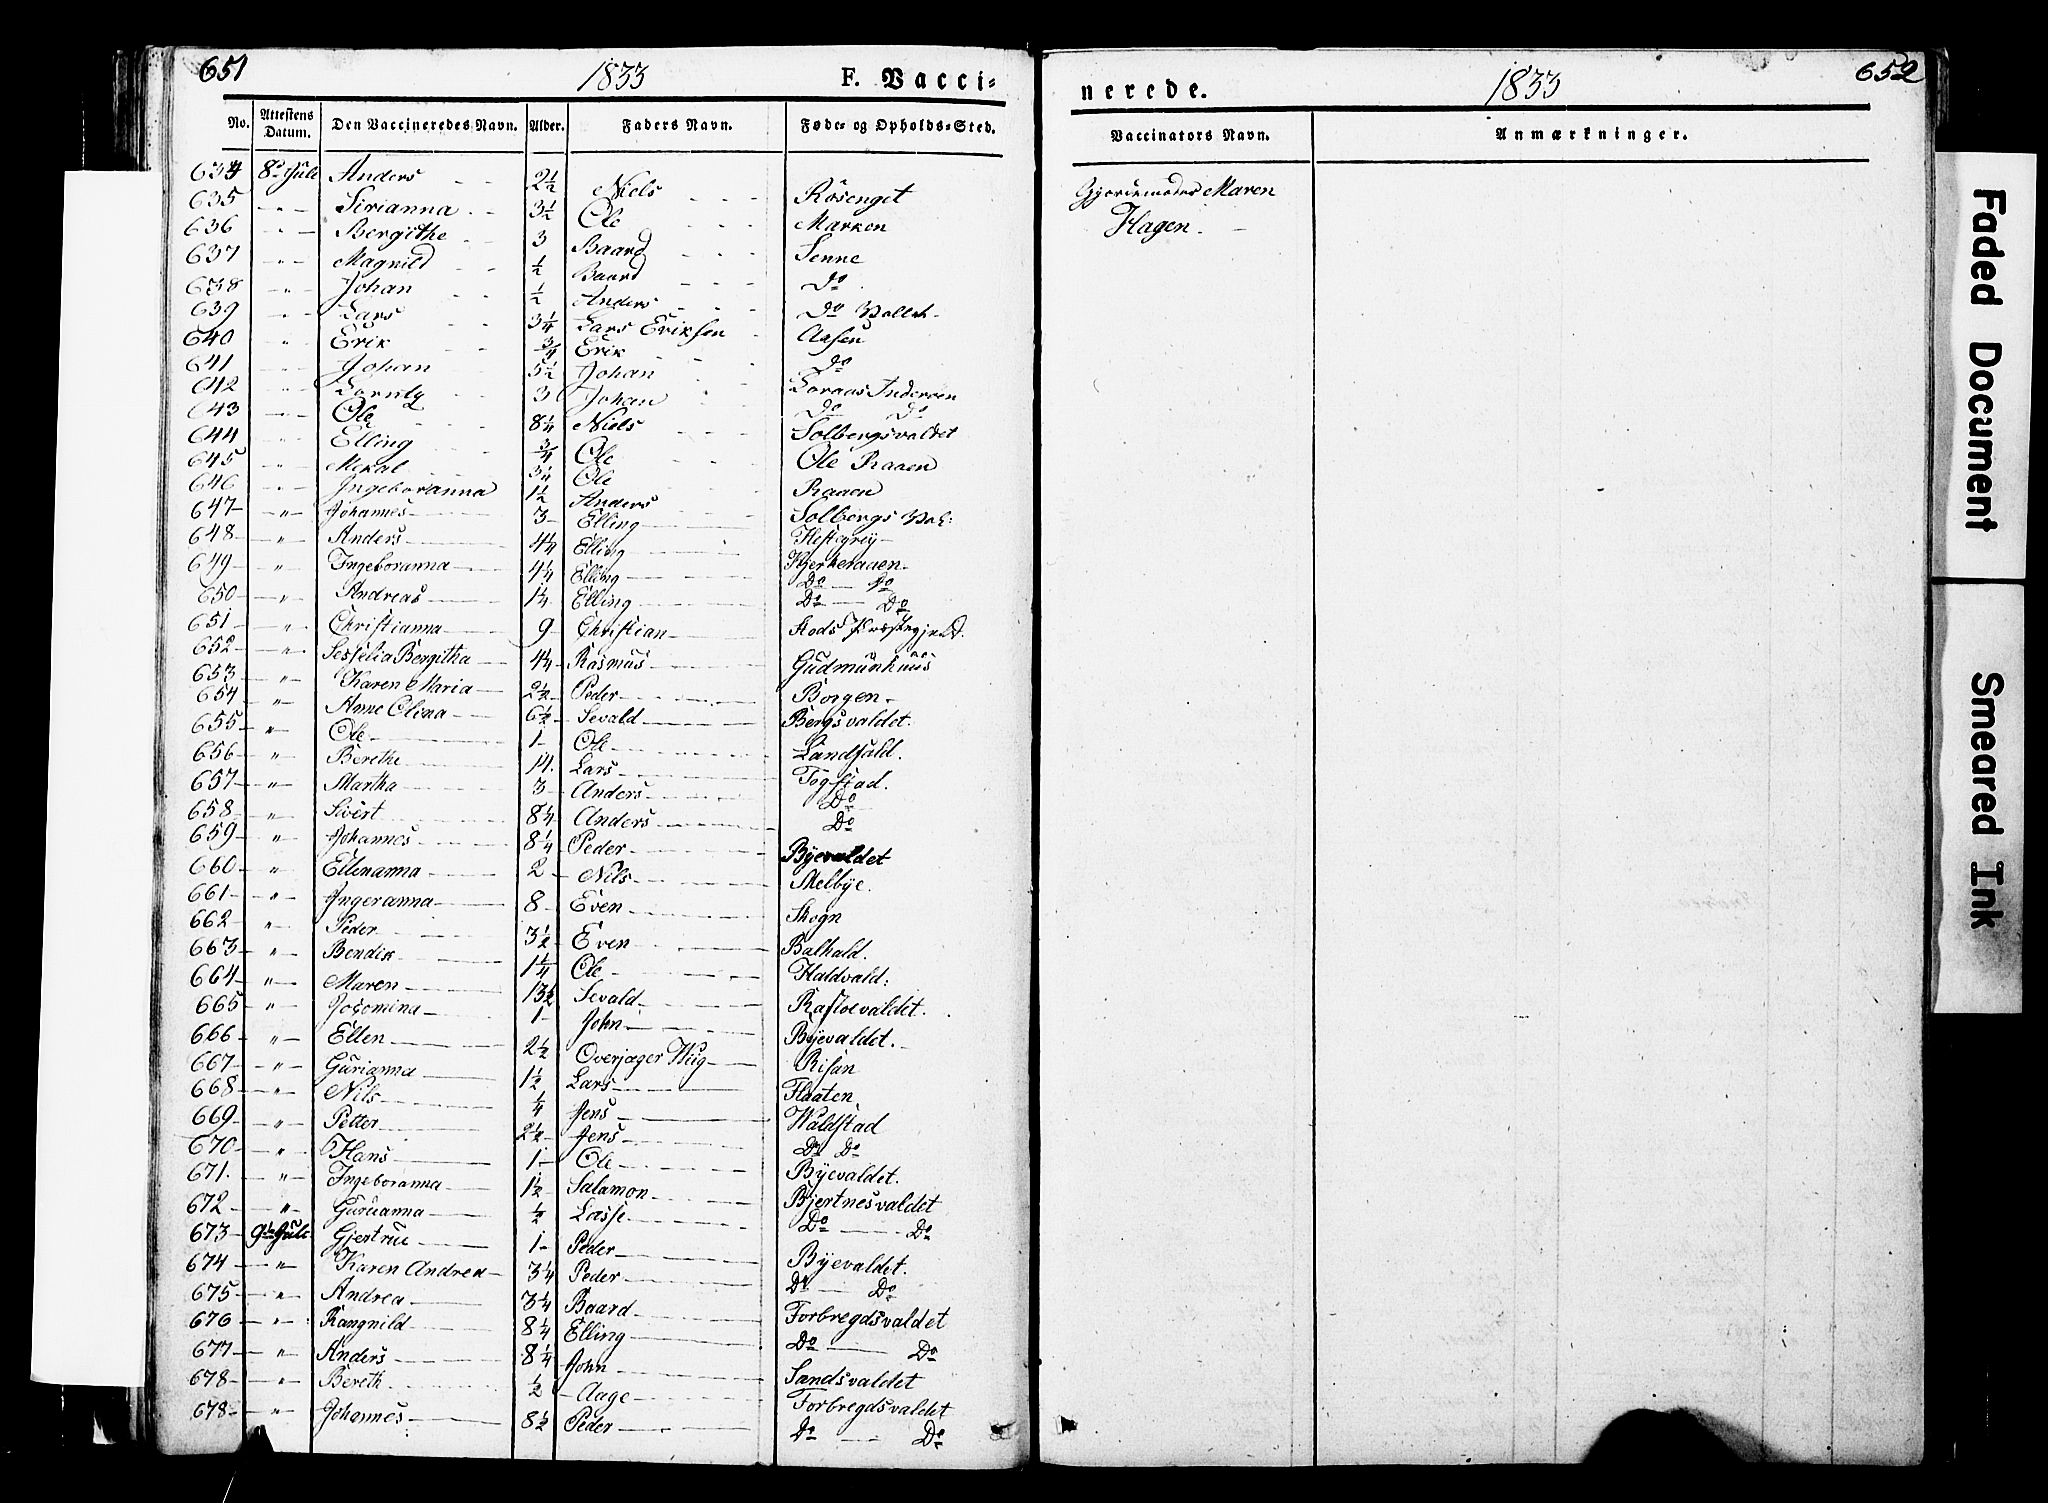 651
1833
F. Vacci-
No. Attestens Datum. Den Vaccineredes Navn. Alder. Faders Navn. Føde- og Opholds-Sted.
634 8de Juli Anders 2½ Niels Rosenget
635 " Sirianna 3½ Ole Marken
636 " Bergithe 3 Baard Senne
637 " Magnild ½ Baard Do
638 " Johan ½ Anders Do
639 " Lars 3¼ Lars Eriksen Aasen
640 " Erik ¾ Erik Do
641 " Johan 5½ Johan Indersen
642 " 3 Johan Do Do
643 " Ole 8¼ Niels Solbergsvaldet
644 " Elling ¾ Ole Ole Raaen
645 " Mekal Ole Raaen
646 " Ingeboranna 1½ Anders Solbergs
647 " Johannes 3 Elling
648 " Anders 4¼ Elling
649 " Ingeboranna 4¼ Elling Do Do
650 " Andreas 1¼ Elling Do Do
651 " Christianna 9 Christian
652 " Sesselia Bergitha 4¼ Rasmus Gudmunhuus
653 " Karen Maria 2½ Peder Borgen
654 " Anne Olina 6½ Sevald Bergsvaldet.
655 " Ole 1 Ole Landfald.
656 " Berethe 14. Lars Togstad.
657 " Martha 3 Anders Do
658 " Sivert 8¼ Anders Do
659 " Johannes 8¼ Peder Byevaldet
660 " Ellenanna 2 Nils Melbye.
661 " Ingeranna 8 Even Skogn
662 " Peder 3½ Even Balhald.
663 " Bendik 1¼ Ole Haldvald:
664 " Maren 13½ Sevald
665 " Josomina 1 John Byevaldet.
666 " Ellen 2½ Overjæger Wug Risan
667 " Gurianna 1½ Lars Flaaten
668 " Nils ¼ Jens Waldstad
669 " Petter 2½ Jens Do Do
670 " Hans 1 Ole Byevaldet.
671. " Ingeboranna 1½ Salamon Bjertnesvaldet
672 " Guruanna ½ Lasse Do Do
673 9de Juli Gjertrue 1 Peder Byevaldet.
674 " Karen Andrea 3¼ Peder Do Do
675 " Andrea 3¼ Baard Forbregdsvaldet
676 " Rangnild 8¼ Elling Do Do
677 " Anders 8¼ John Sandsvaldet
678 " Bereth ½ Aage Forbregdsvaldet
678 " Johannes 8½ Peder Do Do
nerede.
1833
652
Vaccinators Navn. Anmærkninger.
Gjordemoder Maren
Hagen.
Faded Document
Smeared Ink